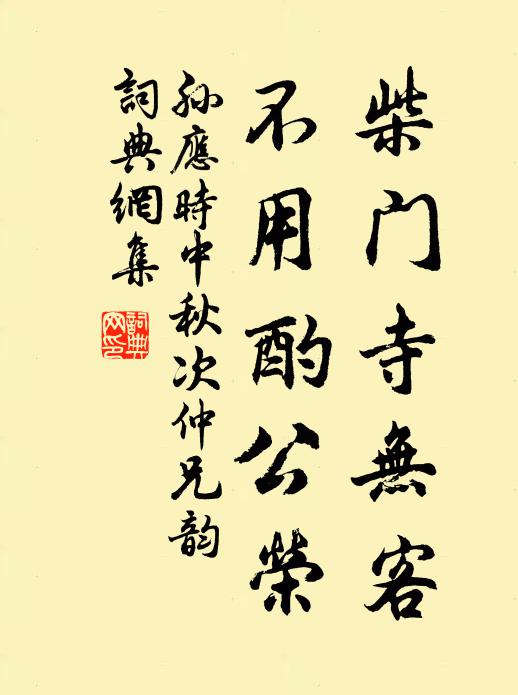 柴门寺無客
不用酌公榮
孙應時中秋次仲兄韵
詞典網集
詞典网印